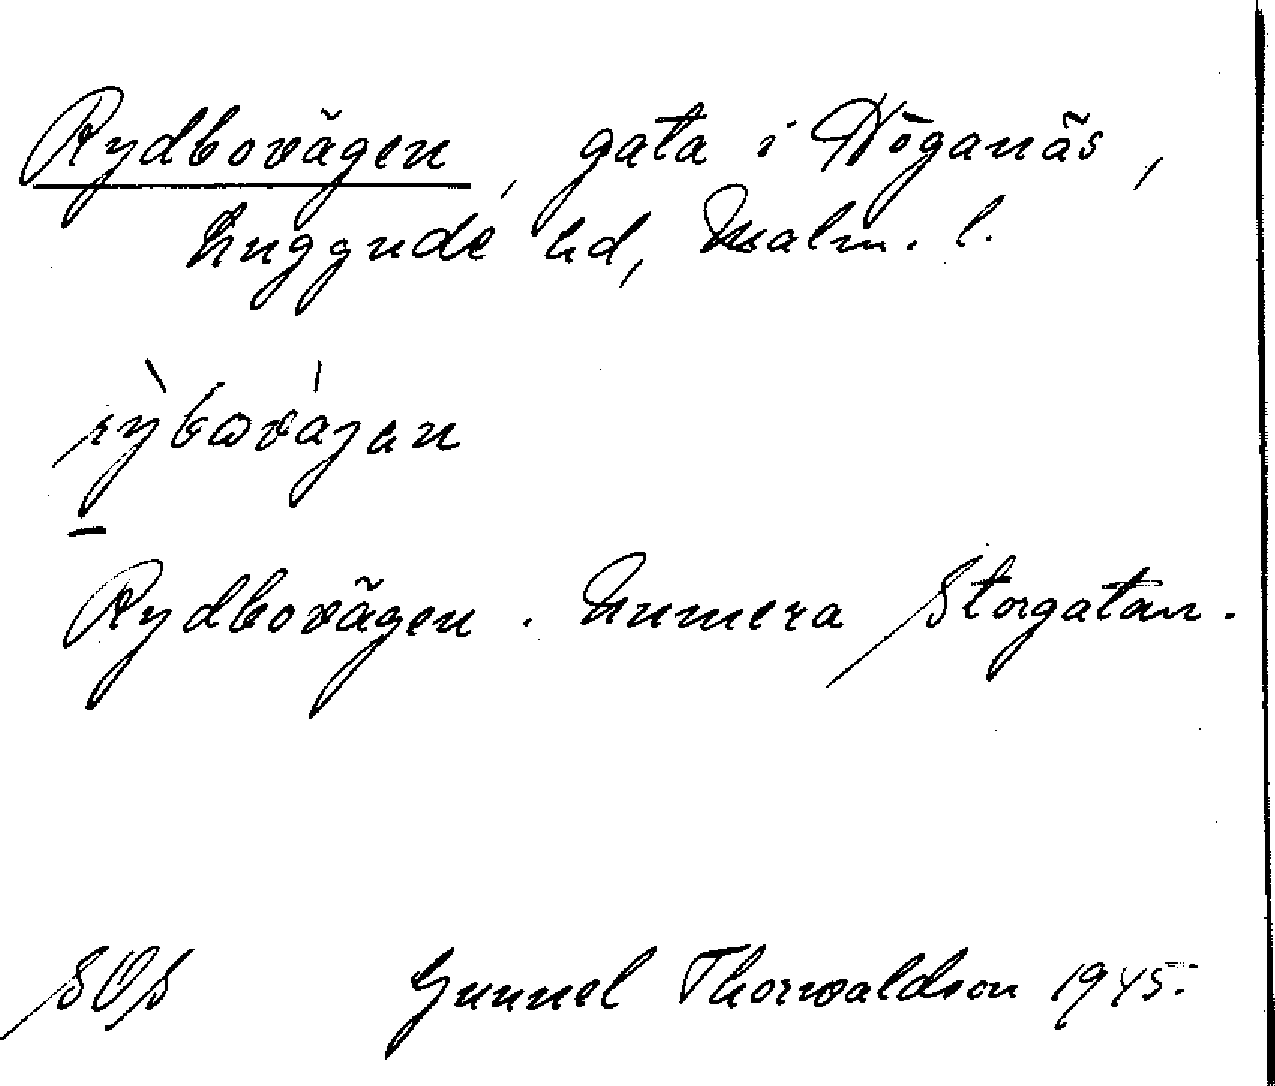 Rydbovägen, gata i Höganäs,
Luggude hd, Malm. l.
rỳbovájan
Rydbovägen. Numera Storgatan.
SOS Gunnel Thorwaldson 1945.